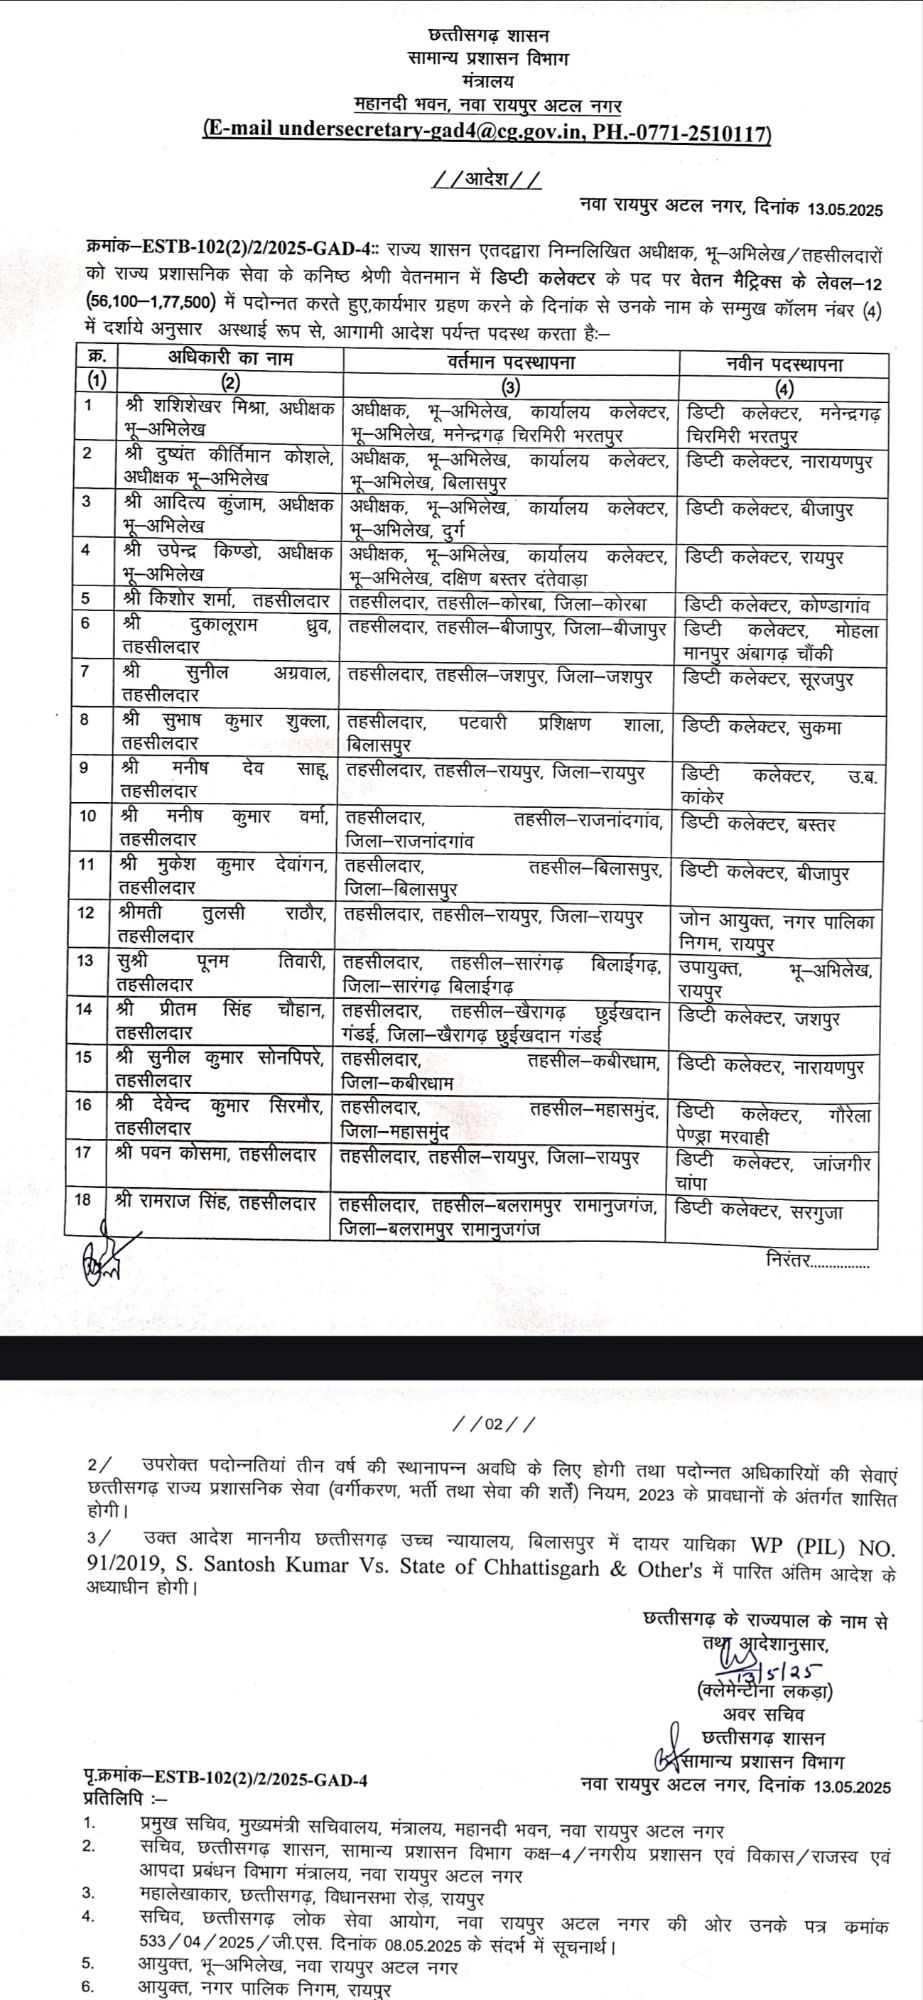 छत्तीसगढ़ शासन
सामान्य प्रशासन विभाग
मंत्रालय
महानदी भवन, नवा रायपुर अटल नगर
(E-mail undersecretary-gad4@cg.gov.in, PH.-0771-2510117)
//आदेश//
नवा रायपुर अटल नगर, दिनांक 13.05.2025
क्रमांक–ESTB-102(2)/2/2025-GAD-4:: राज्य शासन एतदद्वारा निम्नलिखित अधीक्षक, भू–अभिलेख/तहसीलदारों
को राज्य प्रशासनिक सेवा के कनिष्ठ श्रेणी वेतनमान में डिप्टी कलेक्टर के पद पर वेतन मैट्रिक्स के लेवल–12
(56,100–1,77,500) में पदोन्नत करते हुए,कार्यभार ग्रहण करने के दिनांक से उनके नाम के सम्मुख कॉलम नंबर (4)
में दर्शाये अनुसार अस्थाई रूप से, आगामी आदेश पर्यन्त पदस्थ करता है:–
क्र. अधिकारी का नाम वर्तमान पदस्थापना नवीन पदस्थापना
(1) (2) (3) (4)
1 श्री शशिशेखर मिश्रा, अधीक्षक अधीक्षक, भू–अभिलेख, कार्यालय कलेक्टर, डिप्टी कलेक्टर, मनेन्द्रगढ़
भू–अभिलेख भू–अभिलेख, मनेन्द्रगढ़ चिरमिरी भरतपुर चिरमिरी भरतपुर
2 श्री दुष्यंत कीर्तिमान कोशले, अधीक्षक, भू–अभिलेख, कार्यालय कलेक्टर, डिप्टी कलेक्टर, नारायणपुर
अधीक्षक भू–अभिलेख भू–अभिलेख, बिलासपुर
3 श्री आदित्य कुंजाम, अधीक्षक अधीक्षक, भू–अभिलेख, कार्यालय कलेक्टर, डिप्टी कलेक्टर, बीजापुर
भू–अभिलेख भू–अभिलेख, दुर्ग
4 श्री उपेन्द्र किण्डो, अधीक्षक अधीक्षक, भू–अभिलेख, कार्यालय कलेक्टर, डिप्टी कलेक्टर, रायपुर
भू–अभिलेख भू–अभिलेख, दक्षिण बस्तर दंतेवाड़ा
5 श्री किशोर शर्मा, तहसीलदार तहसीलदार, तहसील–कोरबा, जिला–कोरबा डिप्टी कलेक्टर, कोण्डागांव
6 श्री दुकालूराम ध्रुव, तहसीलदार, तहसील–बीजापुर, जिला–बीजापुर डिप्टी कलेक्टर, मोहला
तहसीलदार मानपुर अंबागढ़ चौंकी
7 श्री सुनील अग्रवाल, तहसीलदार, तहसील–जशपुर, जिला–जशपुर डिप्टी कलेक्टर, सूरजपुर
तहसीलदार
8 श्री सुभाष कुमार शुक्ला, तहसीलदार, पटवारी प्रशिक्षण शाला, डिप्टी कलेक्टर, सुकमा
तहसीलदार बिलासपुर
9 श्री मनीष देव साहू, तहसीलदार, तहसील–रायपुर, जिला–रायपुर डिप्टी कलेक्टर, उ.ब.
तहसीलदार कांकेर
10 श्री मनीष कुमार वर्मा, तहसीलदार, तहसील–राजनांदगांव, डिप्टी कलेक्टर, बस्तर
तहसीलदार जिला–राजनांदगांव
11 श्री मुकेश कुमार देवांगन, तहसीलदार, तहसील–बिलासपुर, डिप्टी कलेक्टर, बीजापुर
तहसीलदार जिला–बिलासपुर
12 श्रीमती तुलसी राठौर, तहसीलदार, तहसील–रायपुर, जिला–रायपुर जोन आयुक्त, नगर पालिका
तहसीलदार निगम, रायपुर
13 सुश्री पूनम तिवारी, तहसीलदार, तहसील–सारंगढ़ बिलाईगढ़, उपायुक्त, भू–अभिलेख,
तहसीलदार जिला–सारंगढ़ बिलाईगढ़ रायपुर
14 श्री प्रीतम सिंह चौहान, तहसीलदार, तहसील–खैरागढ़ छुईखदान डिप्टी कलेक्टर, जशपुर
तहसीलदार गंडई, जिला–खैरागढ़ छुईखदान गंडई
15 श्री सुनील कुमार सोनपिपरे, तहसीलदार, तहसील–कबीरधाम, डिप्टी कलेक्टर, नारायणपुर
तहसीलदार जिला–कबीरधाम
16 श्री देवेन्द कुमार सिरमौर, तहसीलदार, तहसील–महासमुंद, डिप्टी कलेक्टर, गौरेला
तहसीलदार जिला–महासमुंद पेण्ड्रा मरवाही
17 श्री पवन कोसमा, तहसीलदार तहसीलदार, तहसील–रायपुर, जिला–रायपुर डिप्टी कलेक्टर, जांजगीर
चांपा
18 श्री रामराज सिंह, तहसीलदार तहसीलदार, तहसील–बलरामपुर रामानुजगंज, डिप्टी कलेक्टर, सरगुजा
जिला–बलरामपुर रामानुजगंज
निरंतर................
//02//
2/ उपरोक्त पदोन्नतियां तीन वर्ष की स्थानापन्न अवधि के लिए होगी तथा पदोन्नत अधिकारियों की सेवाएं
छत्तीसगढ़ राज्य प्रशासनिक सेवा (वर्गीकरण, भर्ती तथा सेवा की शर्तें) नियम, 2023 के प्रावधानों के अंतर्गत शासित
होगी।
3/ उक्त आदेश माननीय छत्तीसगढ़ उच्च न्यायालय, बिलासपुर में दायर याचिका WP (PIL) NO.
91/2019, S. Santosh Kumar Vs. State of Chhattisgarh & Other's में पारित अंतिम आदेश के
अध्याधीन होगी।
छत्तीसगढ़ के राज्यपाल के नाम से
तथा आदेशानुसार,
13/5/25
(क्लेमेन्टीना लकड़ा)
अवर सचिव
छत्तीसगढ़ शासन
सामान्य प्रशासन विभाग
पृ.क्रमांक–ESTB-102(2)/2/2025-GAD-4 नवा रायपुर अटल नगर, दिनांक 13.05.2025
प्रतिलिपि :–
1. प्रमुख सचिव, मुख्यमंत्री सचिवालय, मंत्रालय, महानदी भवन, नवा रायपुर अटल नगर
2. सचिव, छत्तीसगढ़ शासन, सामान्य प्रशासन विभाग कक्ष–4/नगरीय प्रशासन एवं विकास/राजस्व एवं
आपदा प्रबंधन विभाग मंत्रालय, नवा रायपुर अटल नगर
3. महालेखाकार, छत्तीसगढ़, विधानसभा रोड़, रायपुर
4. सचिव, छत्तीसगढ़ लोक सेवा आयोग, नवा रायपुर अटल नगर की ओर उनके पत्र क्रमांक
533/04/2025/जी.एस. दिनांक 08.05.2025 के संदर्भ में सूचनार्थ।
5. आयुक्त, भू–अभिलेख, नवा रायपुर अटल नगर
6. आयुक्त, नगर पालिक निगम, रायपुर